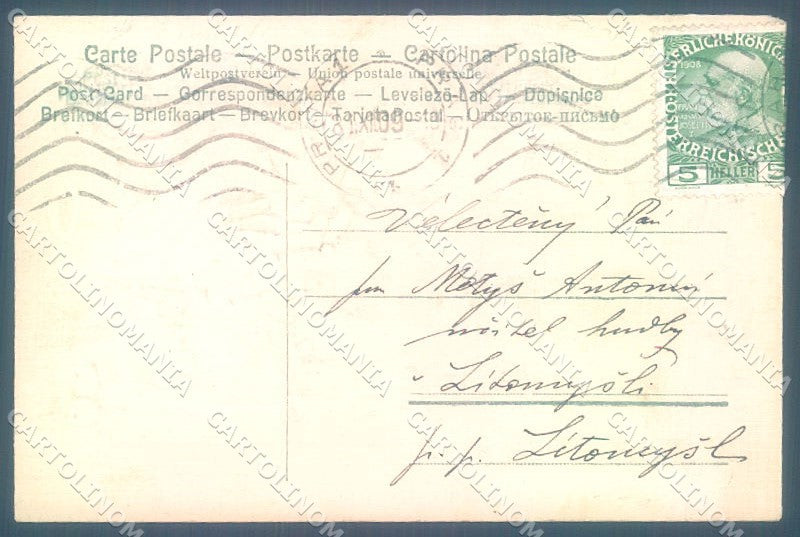 Carte Postale — Postkarte — Cartolina Postale
Weltpostverein — Union postale universelle
Post Card — Correspondenzkarte — Levelező-Lap — Dopisnice
Brefkort — Briefkaart — Brevkort — Tarjeta Postal — Открытое-письмо
1908
5 HELLER
5
XII 09
Velectěný Pán
pan Metyš Antonín
učitel hudby
v Litomyšli
p. p. Litomyšl
CARTOLINOMANIA